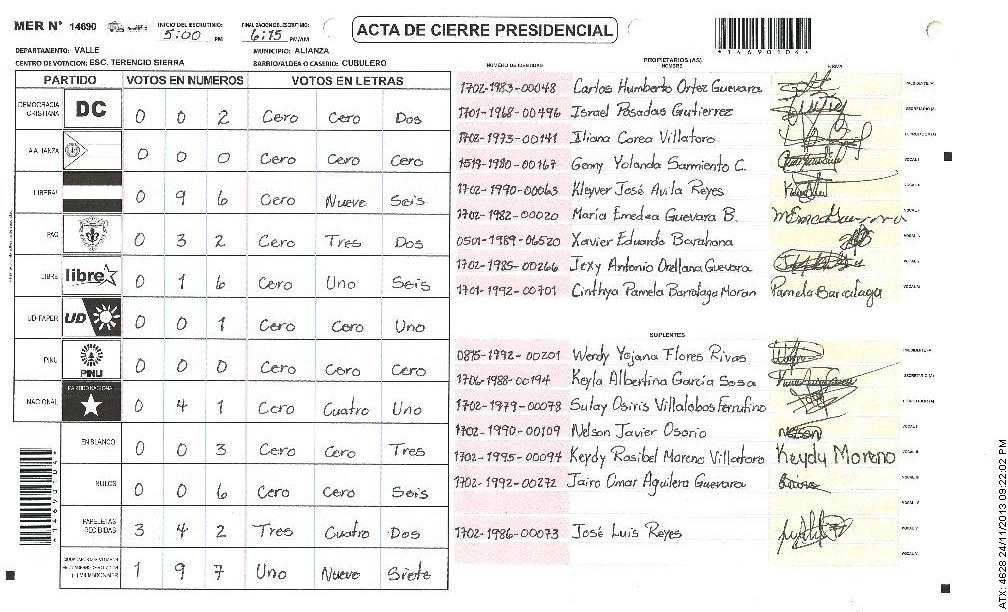 MER N° 14690
INICIO DEL ESCRUTINIO: 5:00 PM
FINALIZACION DEL ESCRUTINIO: 6:15 PM/AM
ACTA DE CIERRE PRESIDENCIAL
*14690104*
DEPARTAMENTO: VALLE
MUNICIPIO: ALIANZA
CENTRO DE VOTACION: ESC. TERENCIO SIERRA
BARRIO/ALDEA O CASERIO: CUBULERO
PARTIDO VOTOS EN NUMEROS VOTOS EN LETRAS
DEMOCRACIA CRISTIANA DC 0 0 2 Cero Cero Dos
LA ALIANZA 0 0 0 Cero Cero Cero
LIBERAL 0 9 6 Cero Nueve Seis
PAC 0 3 2 Cero Tres Dos
LIBRE libre 0 1 6 Cero Uno Seis
UD-FAPER UD 0 0 1 Cero Cero Uno
PINU PINU 0 0 0 Cero Cero Cero
NACIONAL PARTIDO NACIONAL 0 4 1 Cero Cuatro Uno
EN BLANCO 0 0 3 Cero Cero Tres
NULOS 0 0 6 Cero Cero Seis
PAPELETAS RECIBIDAS 3 4 2 Tres Cuatro Dos
1 9 7 Uno Nueve Siete
*14690104*
PROPIETARIOS (AS)
NUMERO DE IDENTIDAD NOMBRE FIRMA
1702-1983-00048 Carlos Humberto Ortez Guevara PRESIDENTE (A)
1701-1968-00496 Israel Posadas Gutierrez SECRETARIO (A)
1702-1973-00141 Iliana Corea Villatoro ESCRUTADOR (A)
1519-1980-00167 Geny Yolanda Sarmiento C. VOCAL I
1702-1990-00063 Kleyver José Avila Reyes VOCAL II
1702-1982-00020 Maria Emedea Guevara B. VOCAL III
0501-1989-06520 Xavier Eduardo Barahona VOCAL IV
1702-1985-00266 Jexy Antonio Orellana Guevara VOCAL V
1701-1992-00701 Cinthya Pamela Barralaga Moran Pamela Barralaga VOCAL VI
SUPLENTES
0815-1992-00201 Wendy Yojana Flores Rivas PRESIDENTE (A)
1706-1988-00194 Keyla Albertina Garcia Sosa SECRETARIO (A)
1702-1979-00078 Sulay Osiris Villalobos Ferrufino ESCRUTADOR (A)
1702-1990-00109 Nelson Javier Osorio Nelson VOCAL I
1702-1995-00094 Keydy Rosibel Moreno Villatoro Keydy Moreno VOCAL II
1702-1992-00272 Jairo Omar Aguilera Guevara VOCAL III
VOCAL IV
1702-1986-00073 José Luis Reyes VOCAL V
VOCAL VI
ATX: 4628 24/11/2013 09:22:02 PM